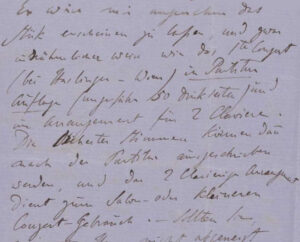 Es wäre mir angenehm das
Stück erscheinen zu lassen, und zwar
wie das 1te Conzert
(bei Haslinger – Wien) in Partitur
Auflage (ungefähr 50 Druckseiten) und
im Arrangement für 2 Claviere.
Die Orchester Stimmen können dann
nach der Partitur ausgeschrieben
werden und das 2 Clavierige Arrangement
dient zum Salon- oder kleineren
Conzert-Gebrauch. – Sollten Sie
nicht abgeneigt